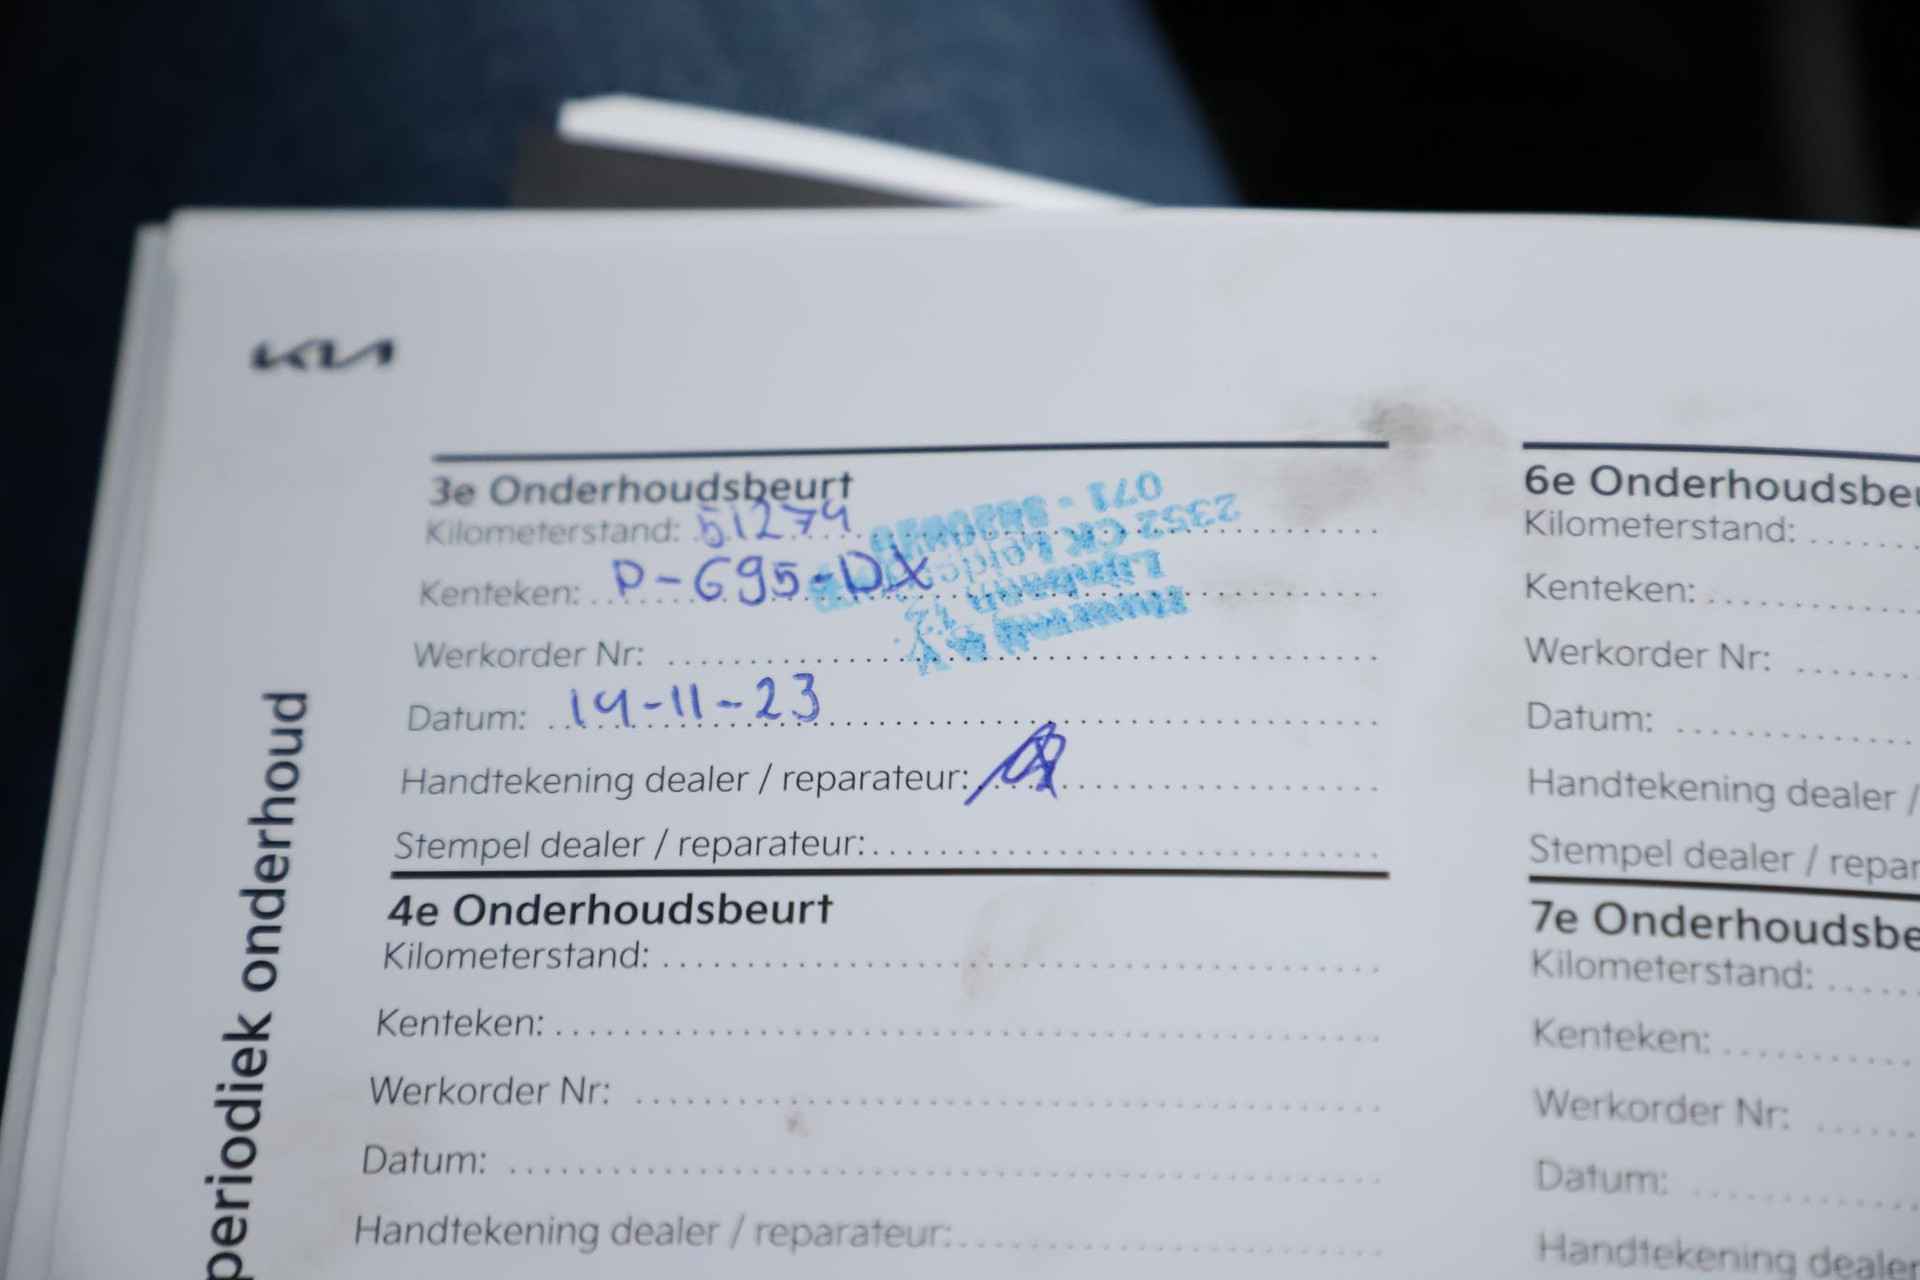 KIA
3e Onderhoudsbeurt
Kilometerstand: 51274
Kenteken: P-695-DX
Werkorder Nr:
Datum: 14-11-23
Handtekening dealer / reparateur:
Stempel dealer / reparateur:
4e Onderhoudsbeurt
Kilometerstand:
Kenteken:
Werkorder Nr:
Datum:
Handtekening dealer / reparateur:
6e Onderhoudsbeu
Kilometerstand:
Kenteken:
Werkorder Nr:
Datum:
Handtekening dealer /
Stempel dealer / repar
7e Onderhoudsbe
Kilometerstand:
Kenteken:
Werkorder Nr:
Datum:
Handtekening dealer
periodiek onderhoud
B.V.
Lijnbaan 13
2352 CK Leiderdorp
071 -